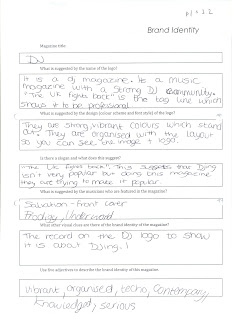 Brand Identity
Magazine title
DJ
What is suggested by the name of the logo?
It is a dj magazine. Its a music
magazine with a strong DJ community.
"The UK fights back" is the tag line which
shows it to be professional.
What is suggested by the design (colour scheme and font style) of the logo?
They are strong, vibrant colours which stand
out. They are organised with the layout
so you can see the image + logo.
Is there a slogan and what does this suggest?
"The UK fights back". This suggests that DJing
isn't very popular but doing this magazine
they are trying to make it popular.
What is suggested by the musicians who are featured in the magazine?
Salvation - Front cover
Prodigy, Underword
What other visual clues are there of the brand identity of the magazine?
The record on the DJ logo to show
it is about DJing.
Use five adjectives to describe the brand identity of this magazine
vibrant, organised, techo, Contempary,
knowledged, serious